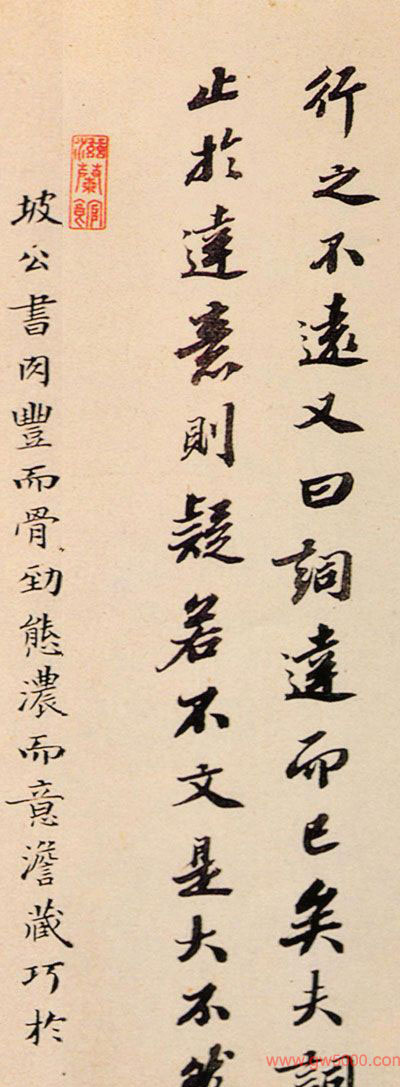 行之不遠又曰詞達而已矣夫詞
止於達意則疑若不文是大不然
坡公書肉豐而骨勁態濃而意澹藏巧於
www.gw5000.com